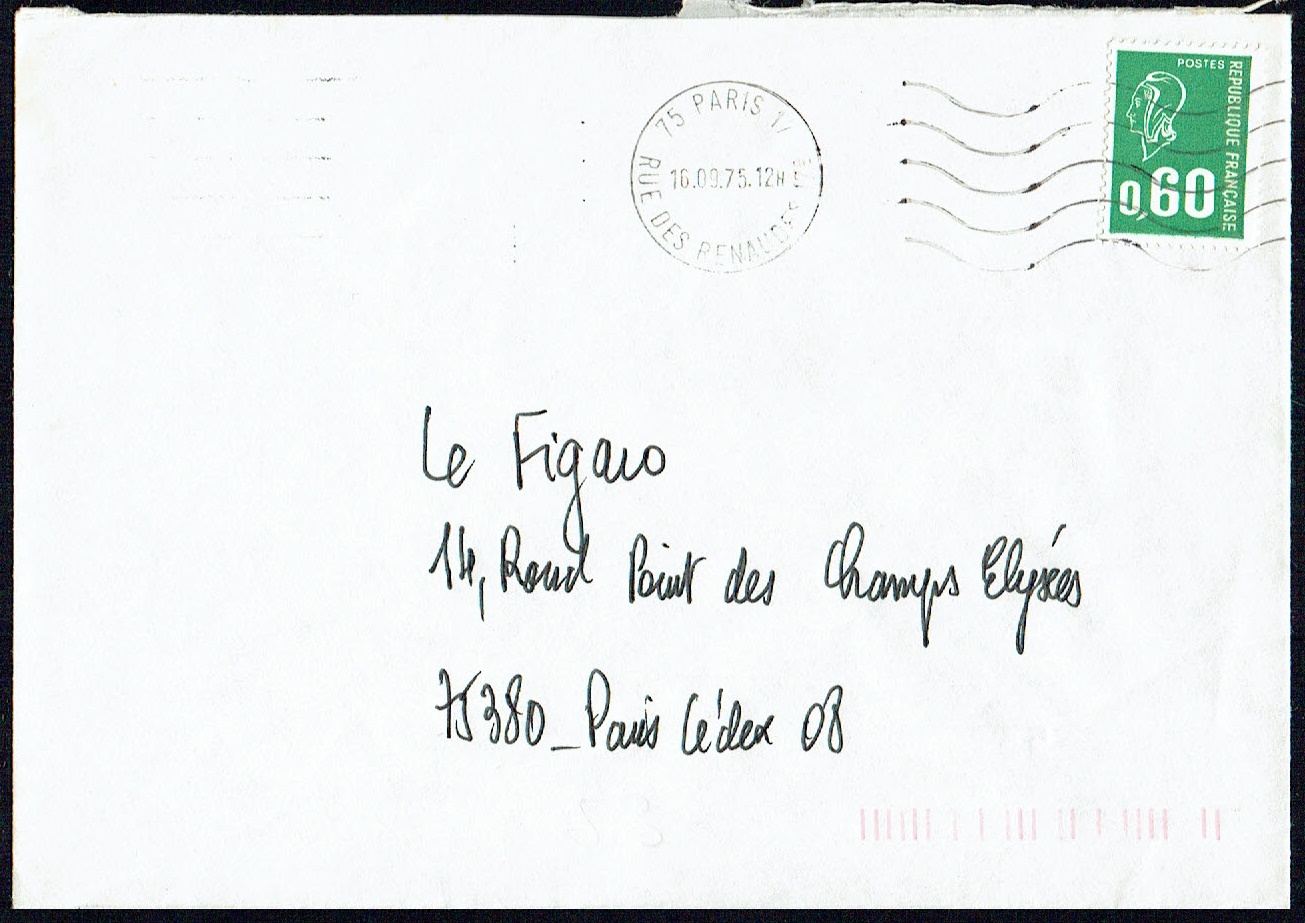 75 PARIS 17
RUE DES RENAUDES
16.09.75.12H
POSTES
REPUBLIQUE FRANÇAISE
0,60
Le Figaro
14, Rond Point des Champs Elysées
75380_Paris Cédex 08